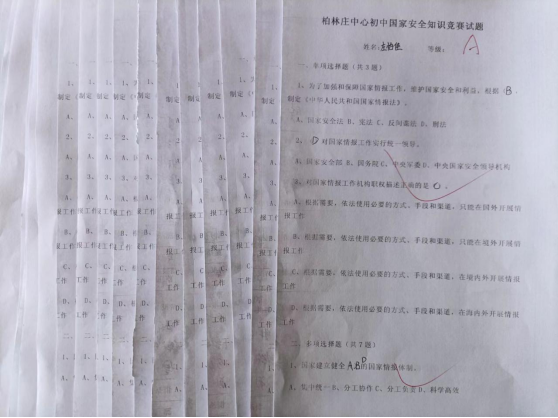 柏林庄中心初中国家安全知识竞赛试题
姓名: 等级: A
一、单项选择题（共3题）
1、为了加强和保障国家情报工作，维护国家安全和利益，根据 B，
制定《中华人民共和国国家情报法》。
A、国家安全法 B、宪法 C、反间谍法 D、刑法
2、D对国家情报工作实行统一领导。
A、国家安全部 B、国务院 C、中央军委 D、中央国家安全领导机构
3、对国家情报工作机构职权描述正确的是 C。
A、根据需要，依法使用必要的方式、手段和渠道，只能在国外开展情
报工作
B、根据需要，依法使用必要的方式、手段和渠道，只能在境外开展情
报工作
C、根据需要，依法使用必要的方式、手段和渠道，在境内外开展情报
工作
D、根据需要，依法使用必要的方式、手段和渠道，在海内外开展情报
工作
二、多项选择题（共7题）
1、国家建立健全ABD的国家情报体制。
A、集中统一 B、分工协作 C、分工负责 D、科学高效